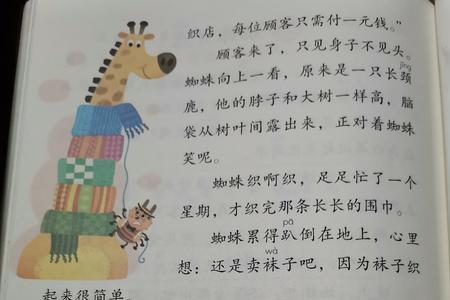 织店，每位顾客只需付一元钱。”
顾客来了，只见身子不见头。
jǐng
蜘蛛向上一看，原来是一只长颈
鹿，他的脖子和大树一样高，脑
袋从树叶间露出来，正对着蜘蛛
笑呢。
蜘蛛织啊织，足足忙了一个
星期，才织完那条长长的围巾。
pā
蜘蛛累得趴倒在地上，心里
wà
想：还是卖袜子吧，因为袜子织
起来很简单。